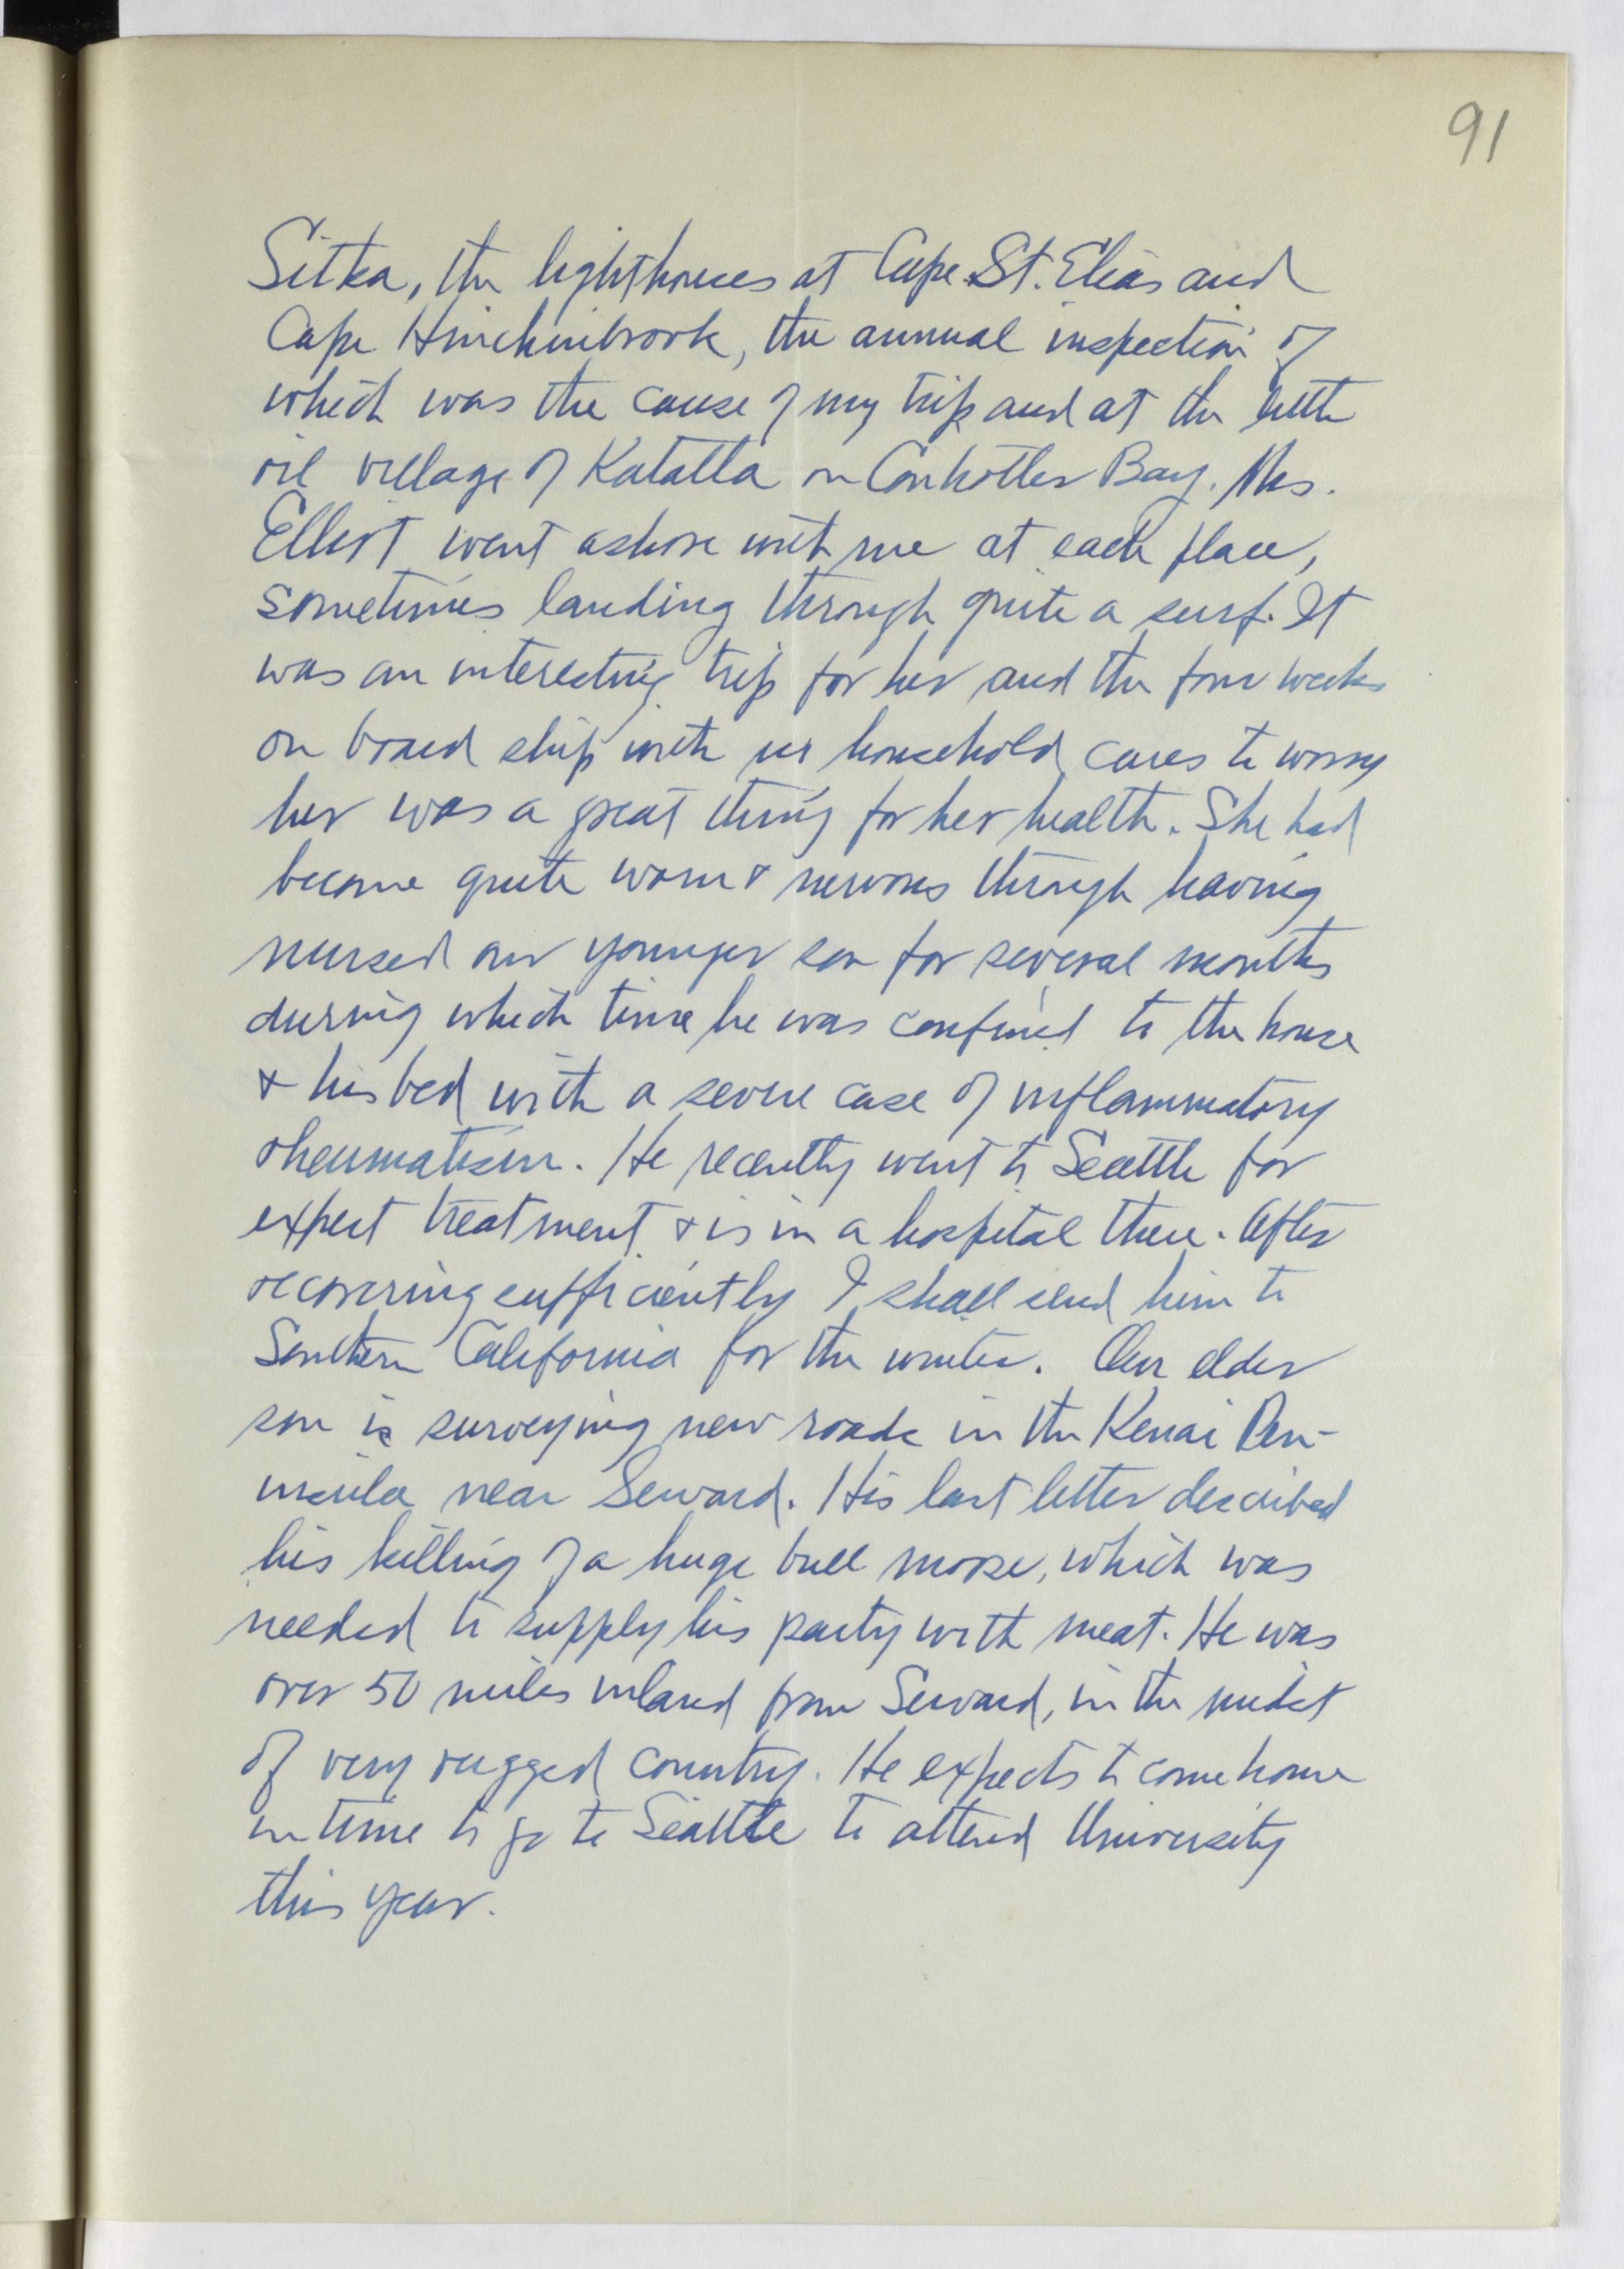 91
Sitka, the lighthouses at Cape St. Elias and
Cape Hinchinbrook, the annual inspection of
which was the cause of my trip and at the little
oil village of Katalla on Controller Bay. Mrs.
Elliot went ashore with me at each place,
sometimes landing through quite a surf. It
was an interesting trip for her and the four weeks
on board ship with no household cares to worry
her was a great thing for her health. She had
become quite worn & nervous through having
nursed our younger son for several months
during which time he was confined to the house
& his bed with a severe case of inflammatory
rheumatism. He recently went to Seattle for
expert treatment & is in a hospital there. After
recovering sufficiently I shall send him to
Southern California for the winter. Our elder
son is surveying new roads in the Kenai Pen-
insula near Seward. His last letter described
his killing of a huge bull moose, which was
needed to supply his party with meat. He was
over 50 miles inland from Seward, in the midst
of very rugged country. He expects to come home
in time to go to Seattle to attend University
this year.